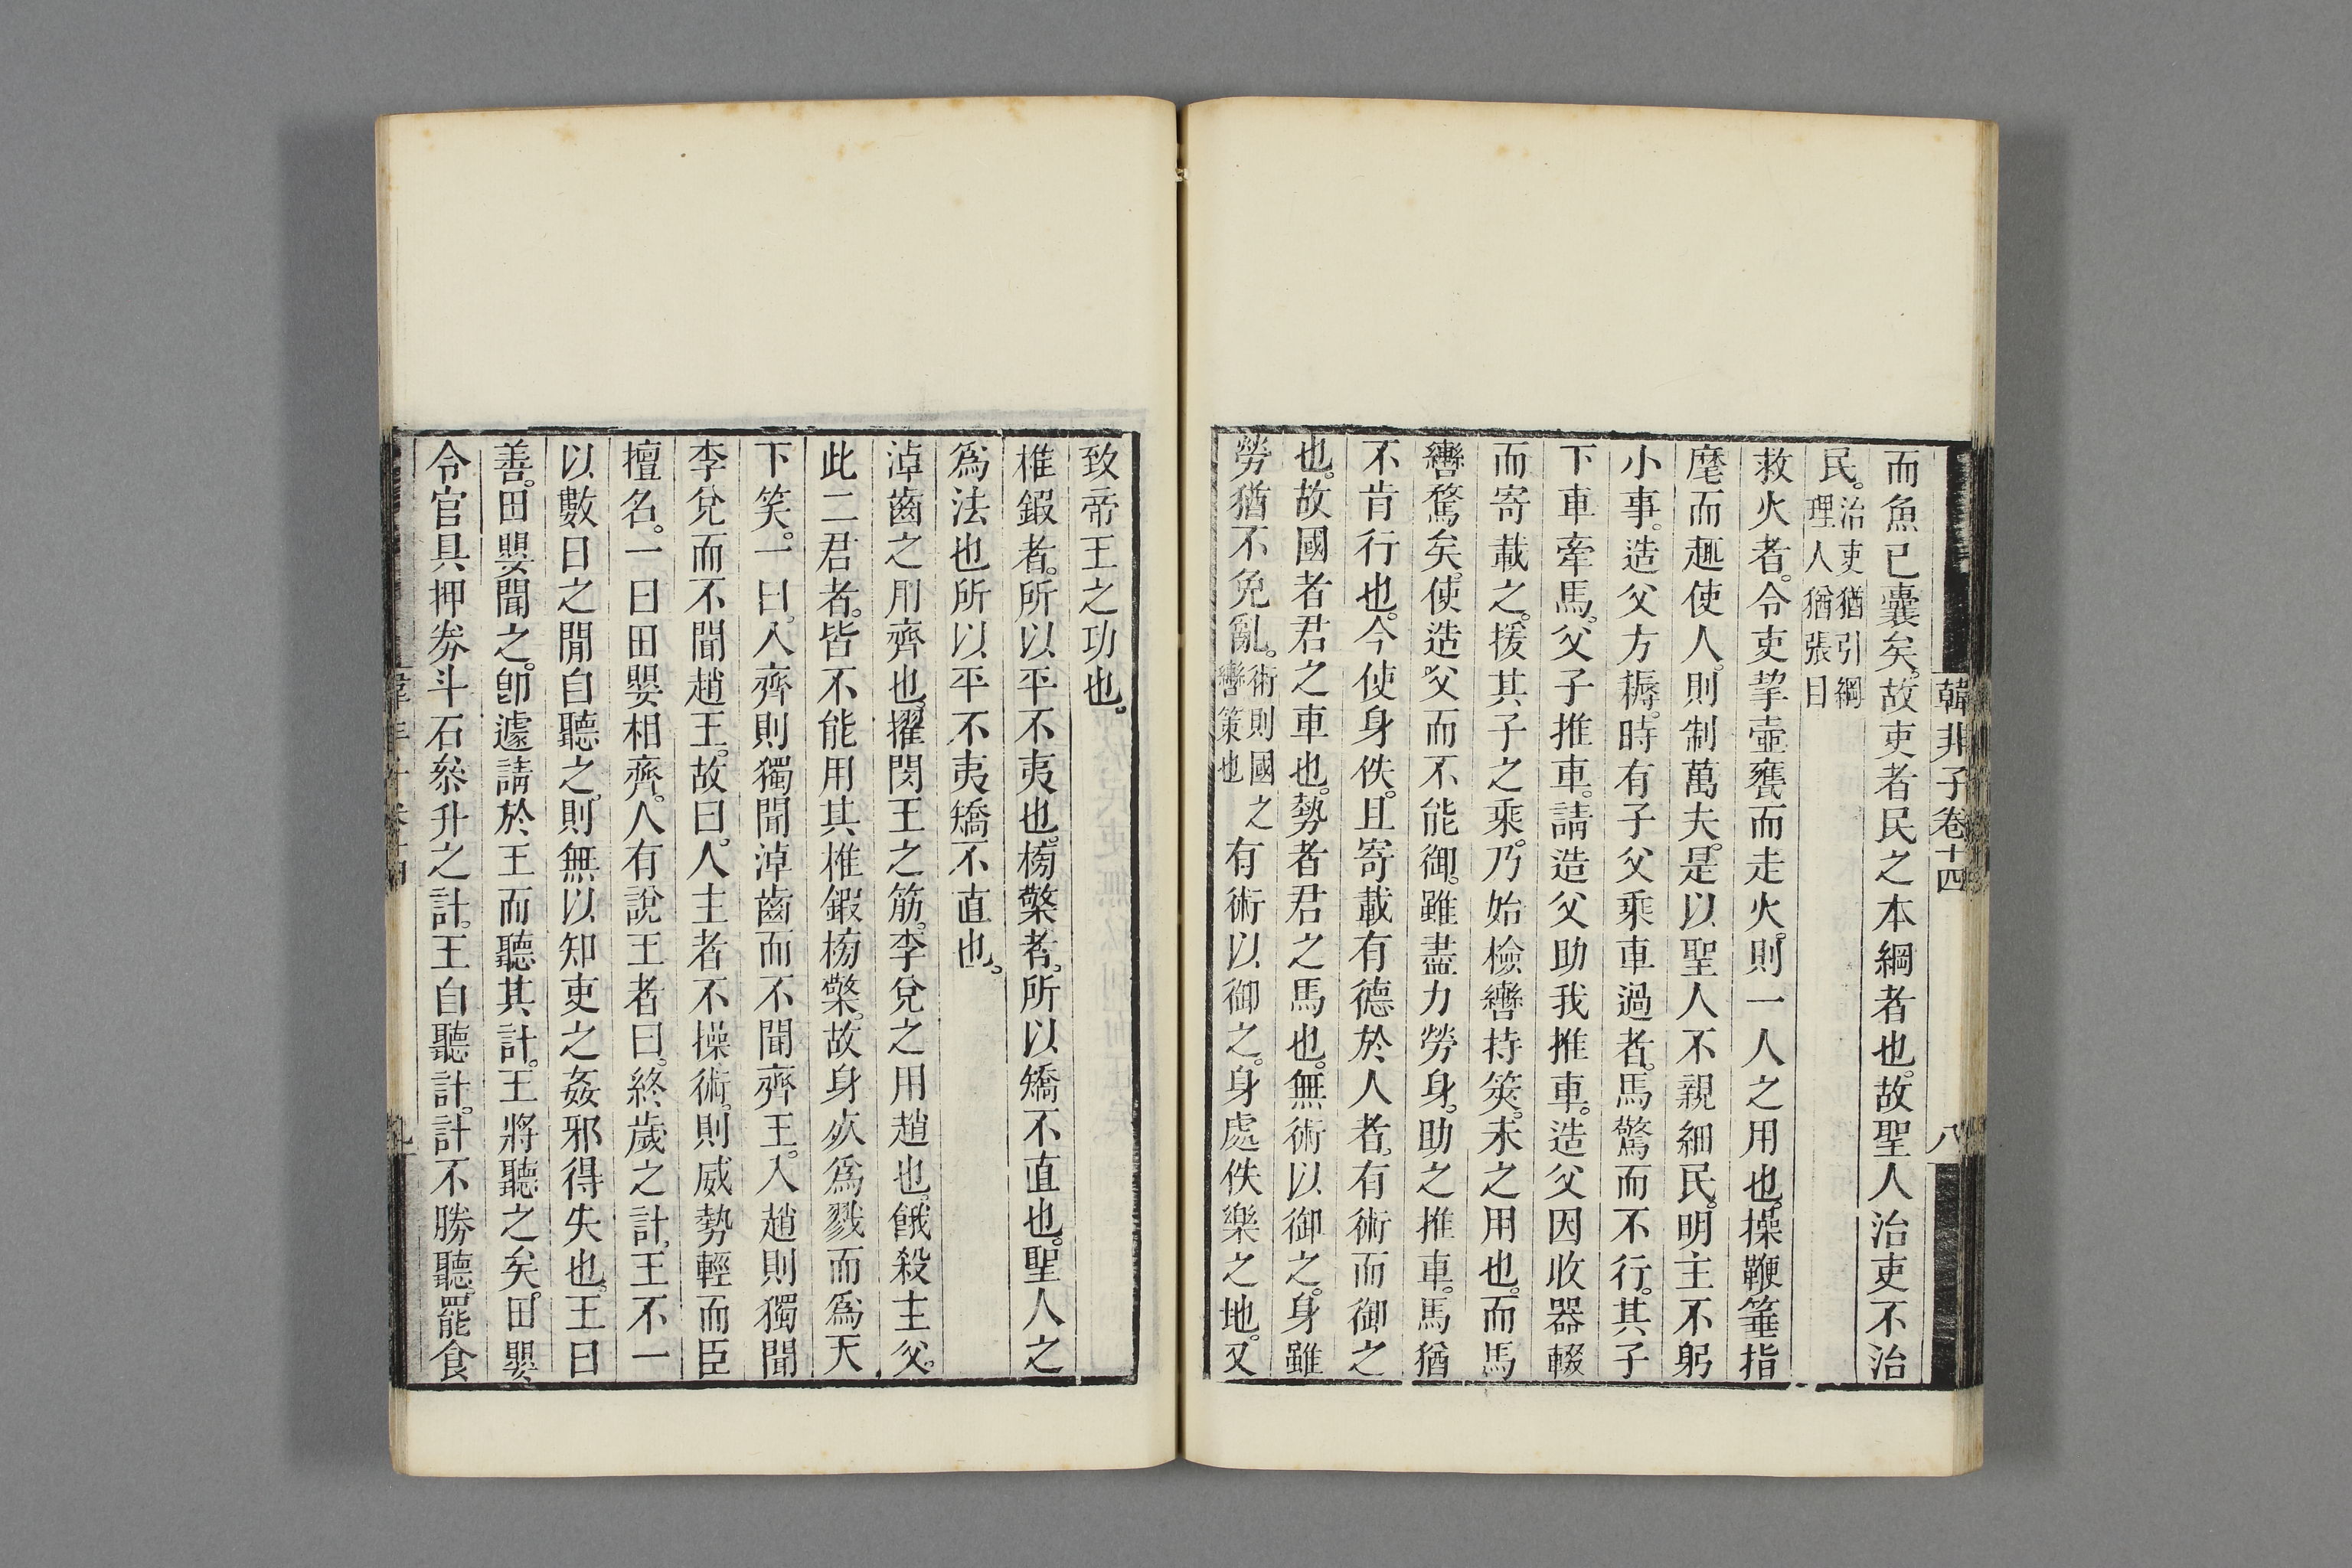 韓非子卷十四
八
而魚已囊矣。故吏者民之本綱者也。故聖人治吏不治
民。治吏猶引綱理人猶張目
救火者。令吏挈壺甕而走火。則一人之用也。操鞭箠指
麾而趣使人。則制萬夫。是以聖人不親細民。明主不躬
小事。造父方耨。時有子父乘車過者。馬驚而不行。其子
下車牽馬。父子推車。請造父助我推車。造父因收器輟
而寄載之。援其子之乘。乃始檢轡持筴。未之用也。而馬
轡驁矣。使造父而不能御。雖盡力勞身。助之推車。馬猶
不肯行也。今使身佚。且寄載有德於人者。有術而御之
也。故國者君之車也。勢者君之馬也。無術以御之。身雖
勞猶不免亂。術則國之轡策也有術以御之。身處佚樂之地。又
致帝王之功也。
椎鍛者。所以平不夷也。榜檠者。所以矯不直也。聖人之
爲法也所以平不夷矯不直也。
淖齒之用齊也。擢閔王之筋。李兌之用趙也。餓殺主父。
此二君者。皆不能用其椎鍛榜檠。故身死爲戮而爲天
下笑。一曰。入齊則獨聞淖齒而不聞齊王。入趙則獨聞
李兌而不聞趙王。故曰。人主者不操術。則威勢輕而臣
擅名。一曰田嬰相齊。人有說王者曰。終歲之計。王不一
以數日之閒自聽之。則無以知吏之姦邪得失也。王曰
善。田嬰聞之。卽遽請於王而聽其計。王將聽之矣。田嬰
令官具押券斗石參升之計。王自聽計。計不勝聽。罷食